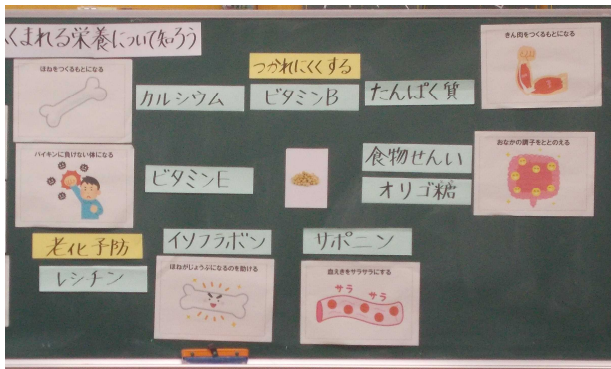 くまれる栄養について知ろう
ほねをつくるもとになる
カルシウム
つかれにくくする
ビタミンB
たんぱく質
きん肉をつくるもとになる
バイキンに負けない体になる
ビタミンE
食物せんい
オリゴ糖
おなかの調子をととのえる
老化予防
レシチン
イソフラボン
ほねがじょうぶになるのを助ける
サポニン
血えきをサラサラにする
サラ サラ